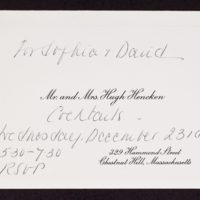 For Sophia & David
Mr. and Mrs. Hugh Hencken
Cocktails -
Wednesday, December 23
530-730
329 Hammond Street
RSVP
Chestnut Hill, Massachusetts